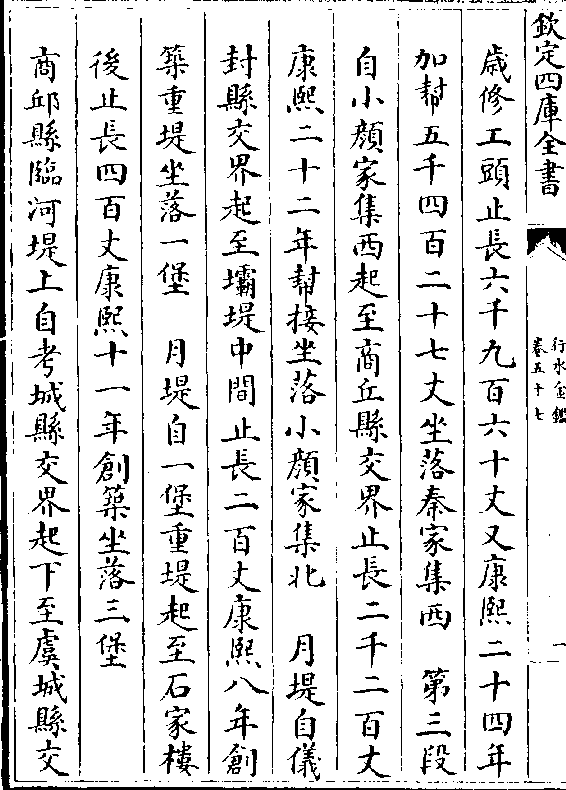 欽定四庫全書
行水金鑑
卷五十七
一
歲修工頭止長六千九百六十丈又康熙二十四年
加幇五千四百二十七丈坐落秦家集西　第三段
自小顔家集西起至商丘縣交界止長二千二百丈
康熙二十二年幇接坐落小顔家集北　月堤自儀
封縣交界起至壩堤中間止長二百丈康熙八年創
築重堤坐落一堡　月堤自一堡重堤起至石家樓
後止長四百丈康熙十一年創築坐落三堡
商邱縣臨河堤上自考城縣交界起下至虞城縣交